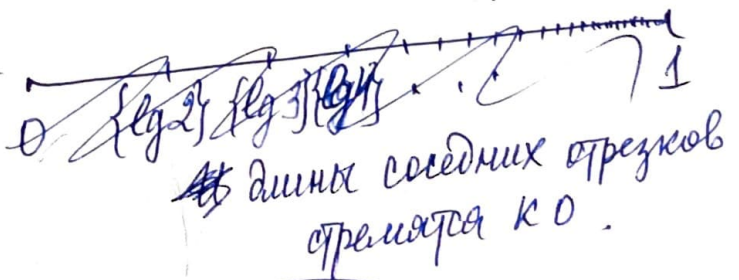 0 {lg2} {lg3} {lg4} . . . 1
длины соседних отрезков
стремятся к 0 .